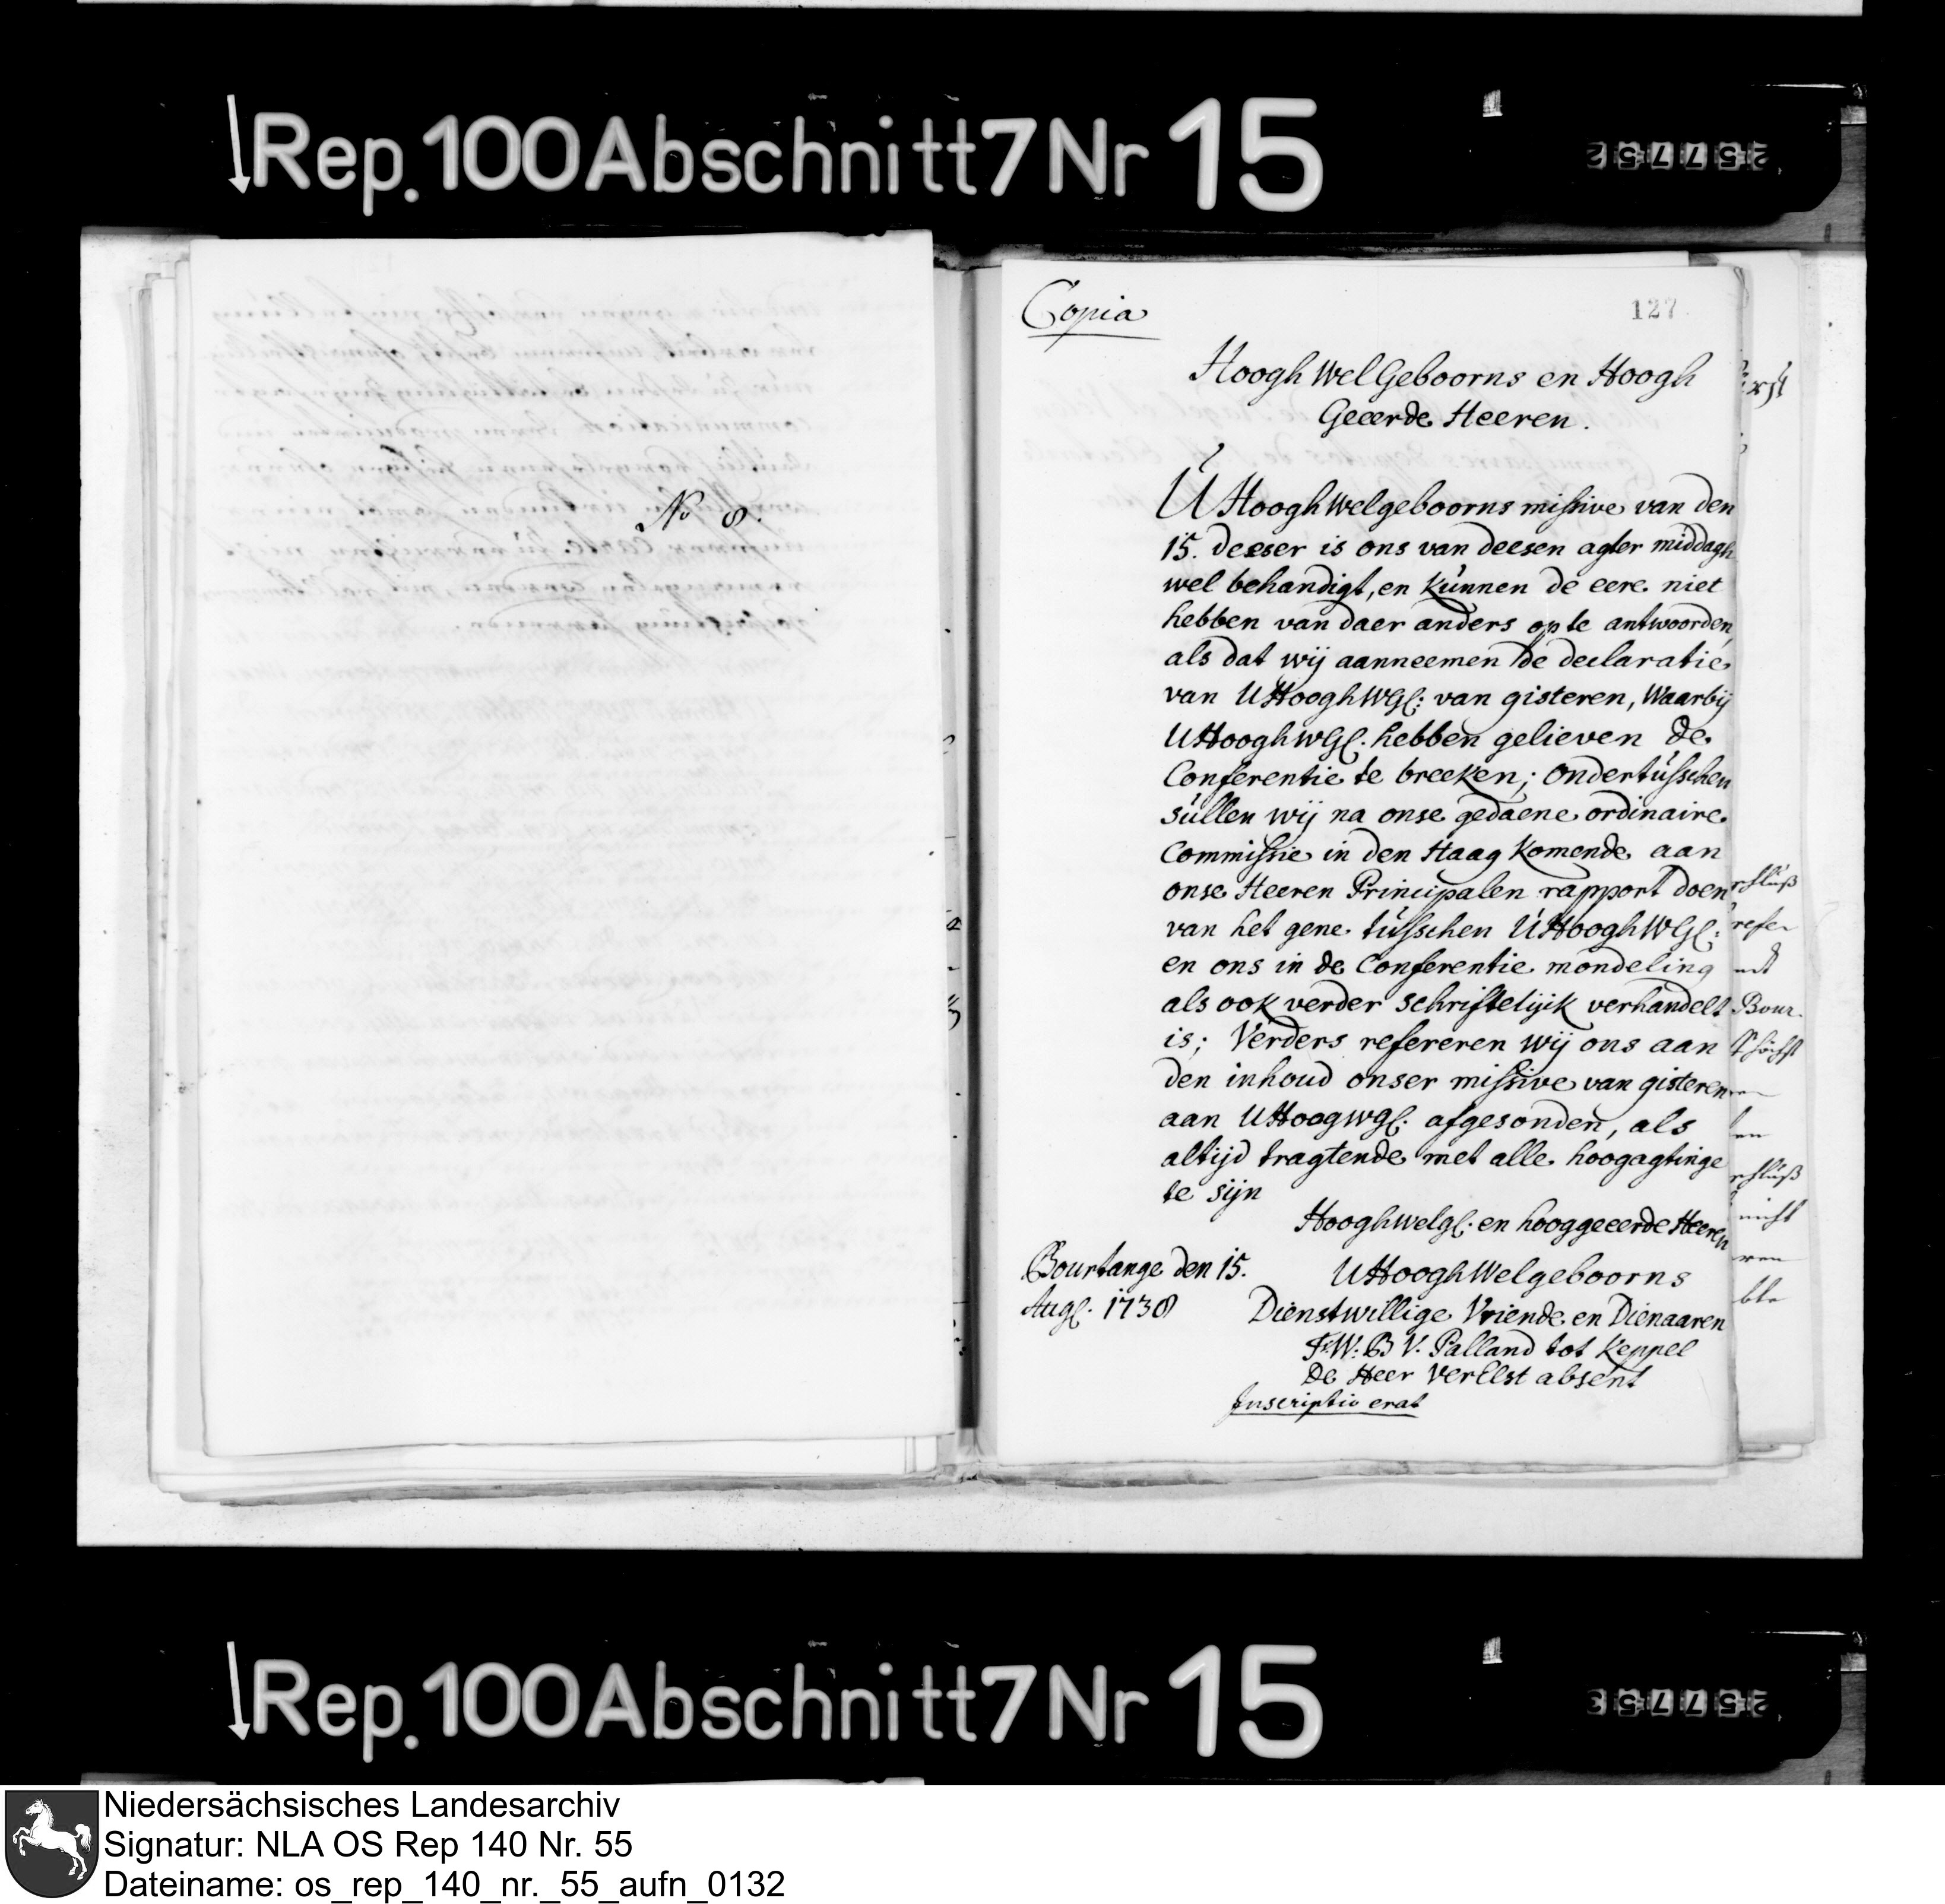 Rep. 100 Abschnitt 7 Nr 15
25775
No 8.
Copia
127
Hoogh WelGeboorns en Hoogh
Geeerde Heeren.
U Hooghwelgeboorns missive van den
15. deeser is ons van deesen agter middagh
wel behandigt, en kunnen de eere niet
hebben van daer anders op te antwoorden,
als dat wij aanneemen de declaratie
van UHooghWGl: van gisteren, Waarbij
UHooghWGl. hebben gelieven de
Conferentie te breeken; Ondertusschen
sullen wij na onse gedaene ordinaire
Commissie in den Haag komende aan
onse Heeren Principalen rapport doen
van het gene tusschen UHooghWGl:
en ons in de Conferentie mondeling
als ook verder schriftelijk verhandelt
is; Verders refereren wij ons aan
den inhoud onser missive van gisteren
aan UHoogwgl. afgesonden, als
altijd tragtende met alle hoogagtinge
te sijn
Hooghwelgl. en hooggeeerde Heeren
Bourtange den 15.
Augl. 1738
UHooghWelgeboorns
Dienstwillige Vriende en Dienaaren
F.W: B V. Palland tot Keppel
De Heer VerElst absent
Inscriptio erat
schluß
refe
Bour.
schluß
nicht
Rep. 100 Abschnitt 7 Nr 15
25775
Niedersächsisches Landesarchiv
Signatur: NLA OS Rep 140 Nr. 55
Dateiname: os_rep_140_nr._55_aufn_0132